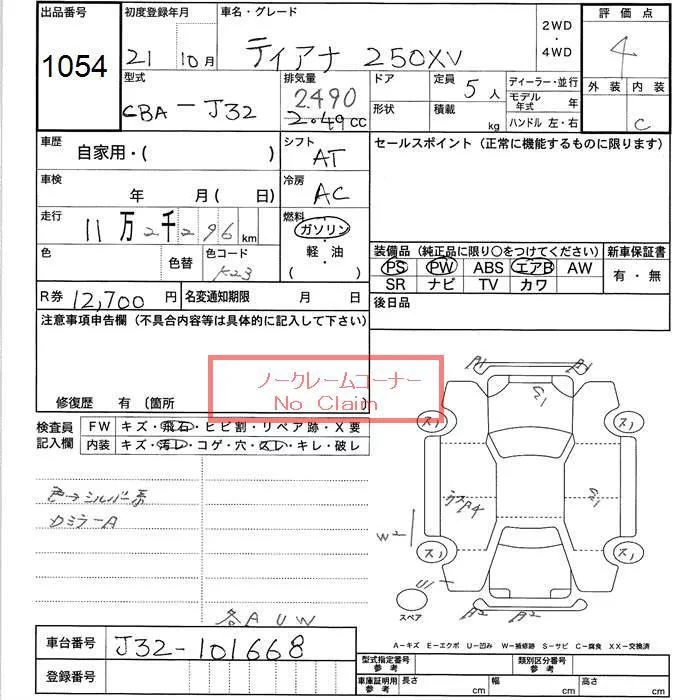 出品番号 初度登録年月 車名・グレード 2WD・4WD 評価点
1054 21 10月 ティアナ 250XV 4
型式 排気量 ドア 定員 5人 ディーラー・並行 外装 内装
CBA-J32 2490 形状 積載 kg モデル年式 年 C
2.49cc ハンドル 左・右
車歴 自家用・( ) シフト AT セールスポイント(正常に機能するものに限ります)
車検 年 月(日) 冷房 AC
走行 11万2千296km 燃料 ガソリン・軽油( )
色 色替 色コード K23
装備品(純正品に限り○をつけてください) 新車保証書
PS PW ABS エアB AW 有・無
SR ナビ TV カワ
R券 12,700円 名変通知期限 月 日 後日品
注意事項申告欄(不具合内容等は具体的に記入して下さい)
ノークレームコーナー
No Claim
修復歴 有 〔箇所
検査員記入欄 FW キズ・飛石・ヒビ割・リペア跡・X要
内装 キズ・汚レ・コゲ・穴・スレ・キレ・破レ
色→シルバー系
カミラーA
各AUW
A1 A1
ス1 ス1
W2
ス1 ス1
スペア
A2 A2
A-キズ E-エクボ U-凹み W-補修跡 S-サビ C-腐食 XX-交換済
車台番号 J32-101668
登録番号
型式指定番号 参考 類別区分番号 参考
車庫証明用 参考 長さ cm 幅 cm 高さ cm